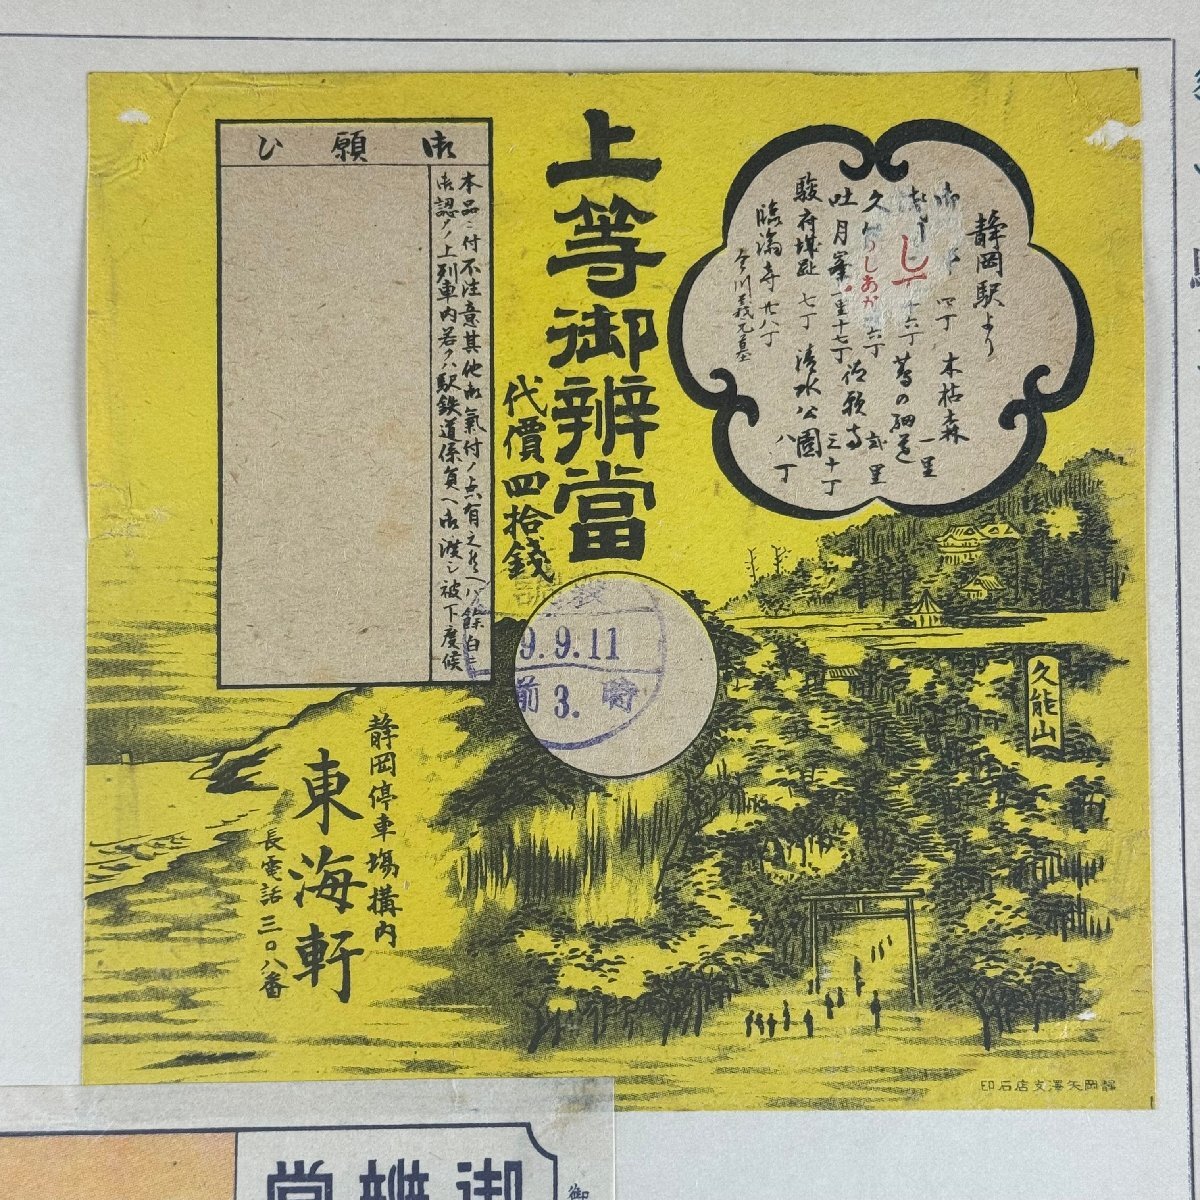 上等御辨當
代價四拾錢
静岡駅より
四丁
木枯森 一里
十六丁
蔦の細道 弐里
六丁
吐月峯 一里十七丁
三十丁
駿府城趾 七丁
清水公園 八丁
臨済寺 廿八丁
今川義元墓
し
しあか
御願ひ
本品ニ付不注意其他御氣付ノ点有之
御認メノ上列車内若クハ駅鉄道係員ヘ御渡シ被下度候
9.9.11
前 3. 時
久能山
静岡停車場構内
東海軒
長電話三〇八番
静岡矢澤支店石印
御辨當
御